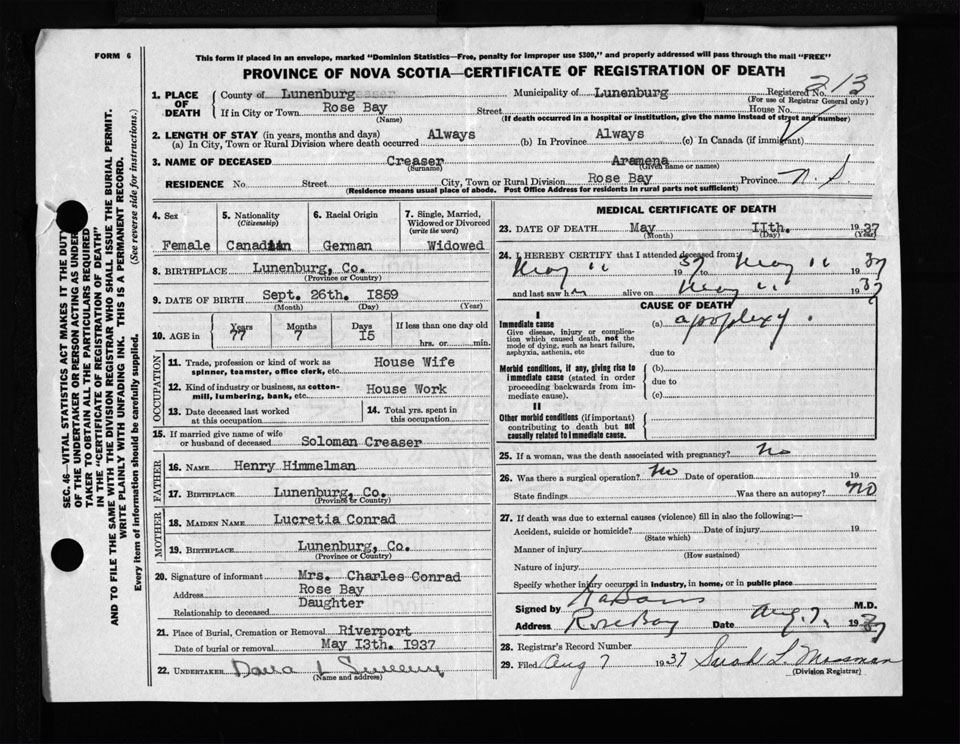 FORM 6
This form if placed in an envelope, marked "Dominion Statistics—Free, penalty for improper use $300," and properly addressed will pass through the mail "FREE"
PROVINCE OF NOVA SCOTIA—CERTIFICATE OF REGISTRATION OF DEATH
SEC. 46—VITAL STATISTICS ACT MAKES IT THE DUTY
OF THE UNDERTAKER OR PERSON ACTING AS UNDER-
TAKER TO OBTAIN ALL THE PARTICULARS REQUIRED
IN THE "CERTIFICATE OF REGISTRATION OF DEATH"
AND TO FILE THE SAME WITH THE DIVISION REGISTRAR WHO SHALL ISSUE THE BURIAL PERMIT.
WRITE PLAINLY WITH UNFADING INK. THIS IS A PERMANENT RECORD.
Every item of information should be carefully supplied. (See reverse side for instructions.)
1. PLACE OF DEATH County of Lunenburg Municipality of Lunenburg Registered No. 213
(For use of Registrar General only)
If in City or Town Rose Bay Street House No.
(Name) (If death occurred in a hospital or institution, give the name instead of street and number)
2. LENGTH OF STAY (in years, months and days)
(a) In City, Town or Rural Division where death occurred Always (b) In Province Always (c) In Canada (if immigrant)
3. NAME OF DECEASED Creaser Aramena
(Surname) (Given name or names)
RESIDENCE No. Street City, Town or Rural Division Rose Bay Province N.S.
(Residence means usual place of abode. Post Office Address for residents in rural parts not sufficient)
4. Sex 5. Nationality (Citizenship) 6. Racial Origin 7. Single, Married, Widowed or Divorced (write the word)
Female Canadian German Widowed
8. BIRTHPLACE Lunenburg, Co.
(Province or Country)
9. DATE OF BIRTH Sept. 26th. 1859
(Month) (Day) (Year)
10. AGE in Years Months Days If less than one day old
77 7 15 hrs. or min.
OCCUPATION
11. Trade, profession or kind of work as spinner, teamster, office clerk, etc. House Wife
12. Kind of industry or business, as cotton-mill, lumbering, bank, etc. House Work
13. Date deceased last worked at this occupation 14. Total yrs. spent in this occupation
15. If married give name of wife or husband of deceased Soloman Creaser
FATHER
16. NAME Henry Himmelman
17. BIRTHPLACE Lunenburg, Co.
(Province or Country)
MOTHER
18. MAIDEN NAME Lucretia Conrad
19. BIRTHPLACE Lunenburg, Co.
(Province or Country)
20. Signature of informant Mrs. Charles Conrad
Address Rose Bay
Relationship to deceased Daughter
21. Place of Burial, Cremation or Removal Riverport
Date of burial or removal May 13th. 1937
22. UNDERTAKER L Sweeny
(Name and address)
MEDICAL CERTIFICATE OF DEATH
23. DATE OF DEATH May 11th. 1937
(Month) (Day) (Year)
24. I HEREBY CERTIFY that I attended deceased from
May 11 1937 to May 11 1937
and last saw her alive on May 11 1937
CAUSE OF DEATH
I
Immediate cause (a) apoplexy.
Give disease, injury or complication which caused death, not the mode of dying, such as heart failure, asphyxia, asthenia, etc
due to
Morbid conditions, if any, giving rise to immediate cause (stated in order proceeding backwards from immediate cause).
(b)
due to
(c)
II
Other morbid conditions (if important) contributing to death but not causally related to immediate cause.
25. If a woman, was the death associated with pregnancy? No
26. Was there a surgical operation? No Date of operation 19
State findings Was there an autopsy? No
27. If death was due to external causes (violence) fill in also the following:—
Accident, suicide or homicide? Date of injury 19
(State which)
Manner of injury
(How sustained)
Nature of injury
Specify whether injury occurred in industry, in home, or in public place
Signed by M.D.
Address Rose Bay Date Aug. 7. 1937
28. Registrar's Record Number
29. Filed Aug 7 1937 Sarah L. Mossman
(Division Registrar)